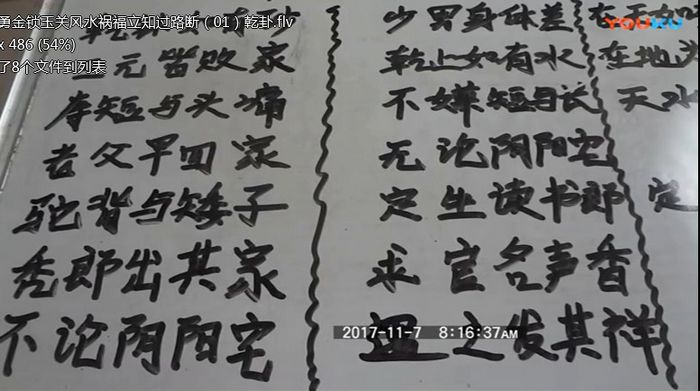 勇金锁玉关风水祸福立知过路断（01）乾卦.flv
x 486 (54%)
了8个文件到列表
YOUKU
元皆败家
痨短与头痛
老父早回家
驼背与矮子
秃郎出其家
不论阴阳宅
少男身体差
乾上如有水
不嫌短与长
无论阴阳宅
定坐读书郎
求官名声香
遇之发其祥
在地
天水
定
2017-11-7 8:16:37AM